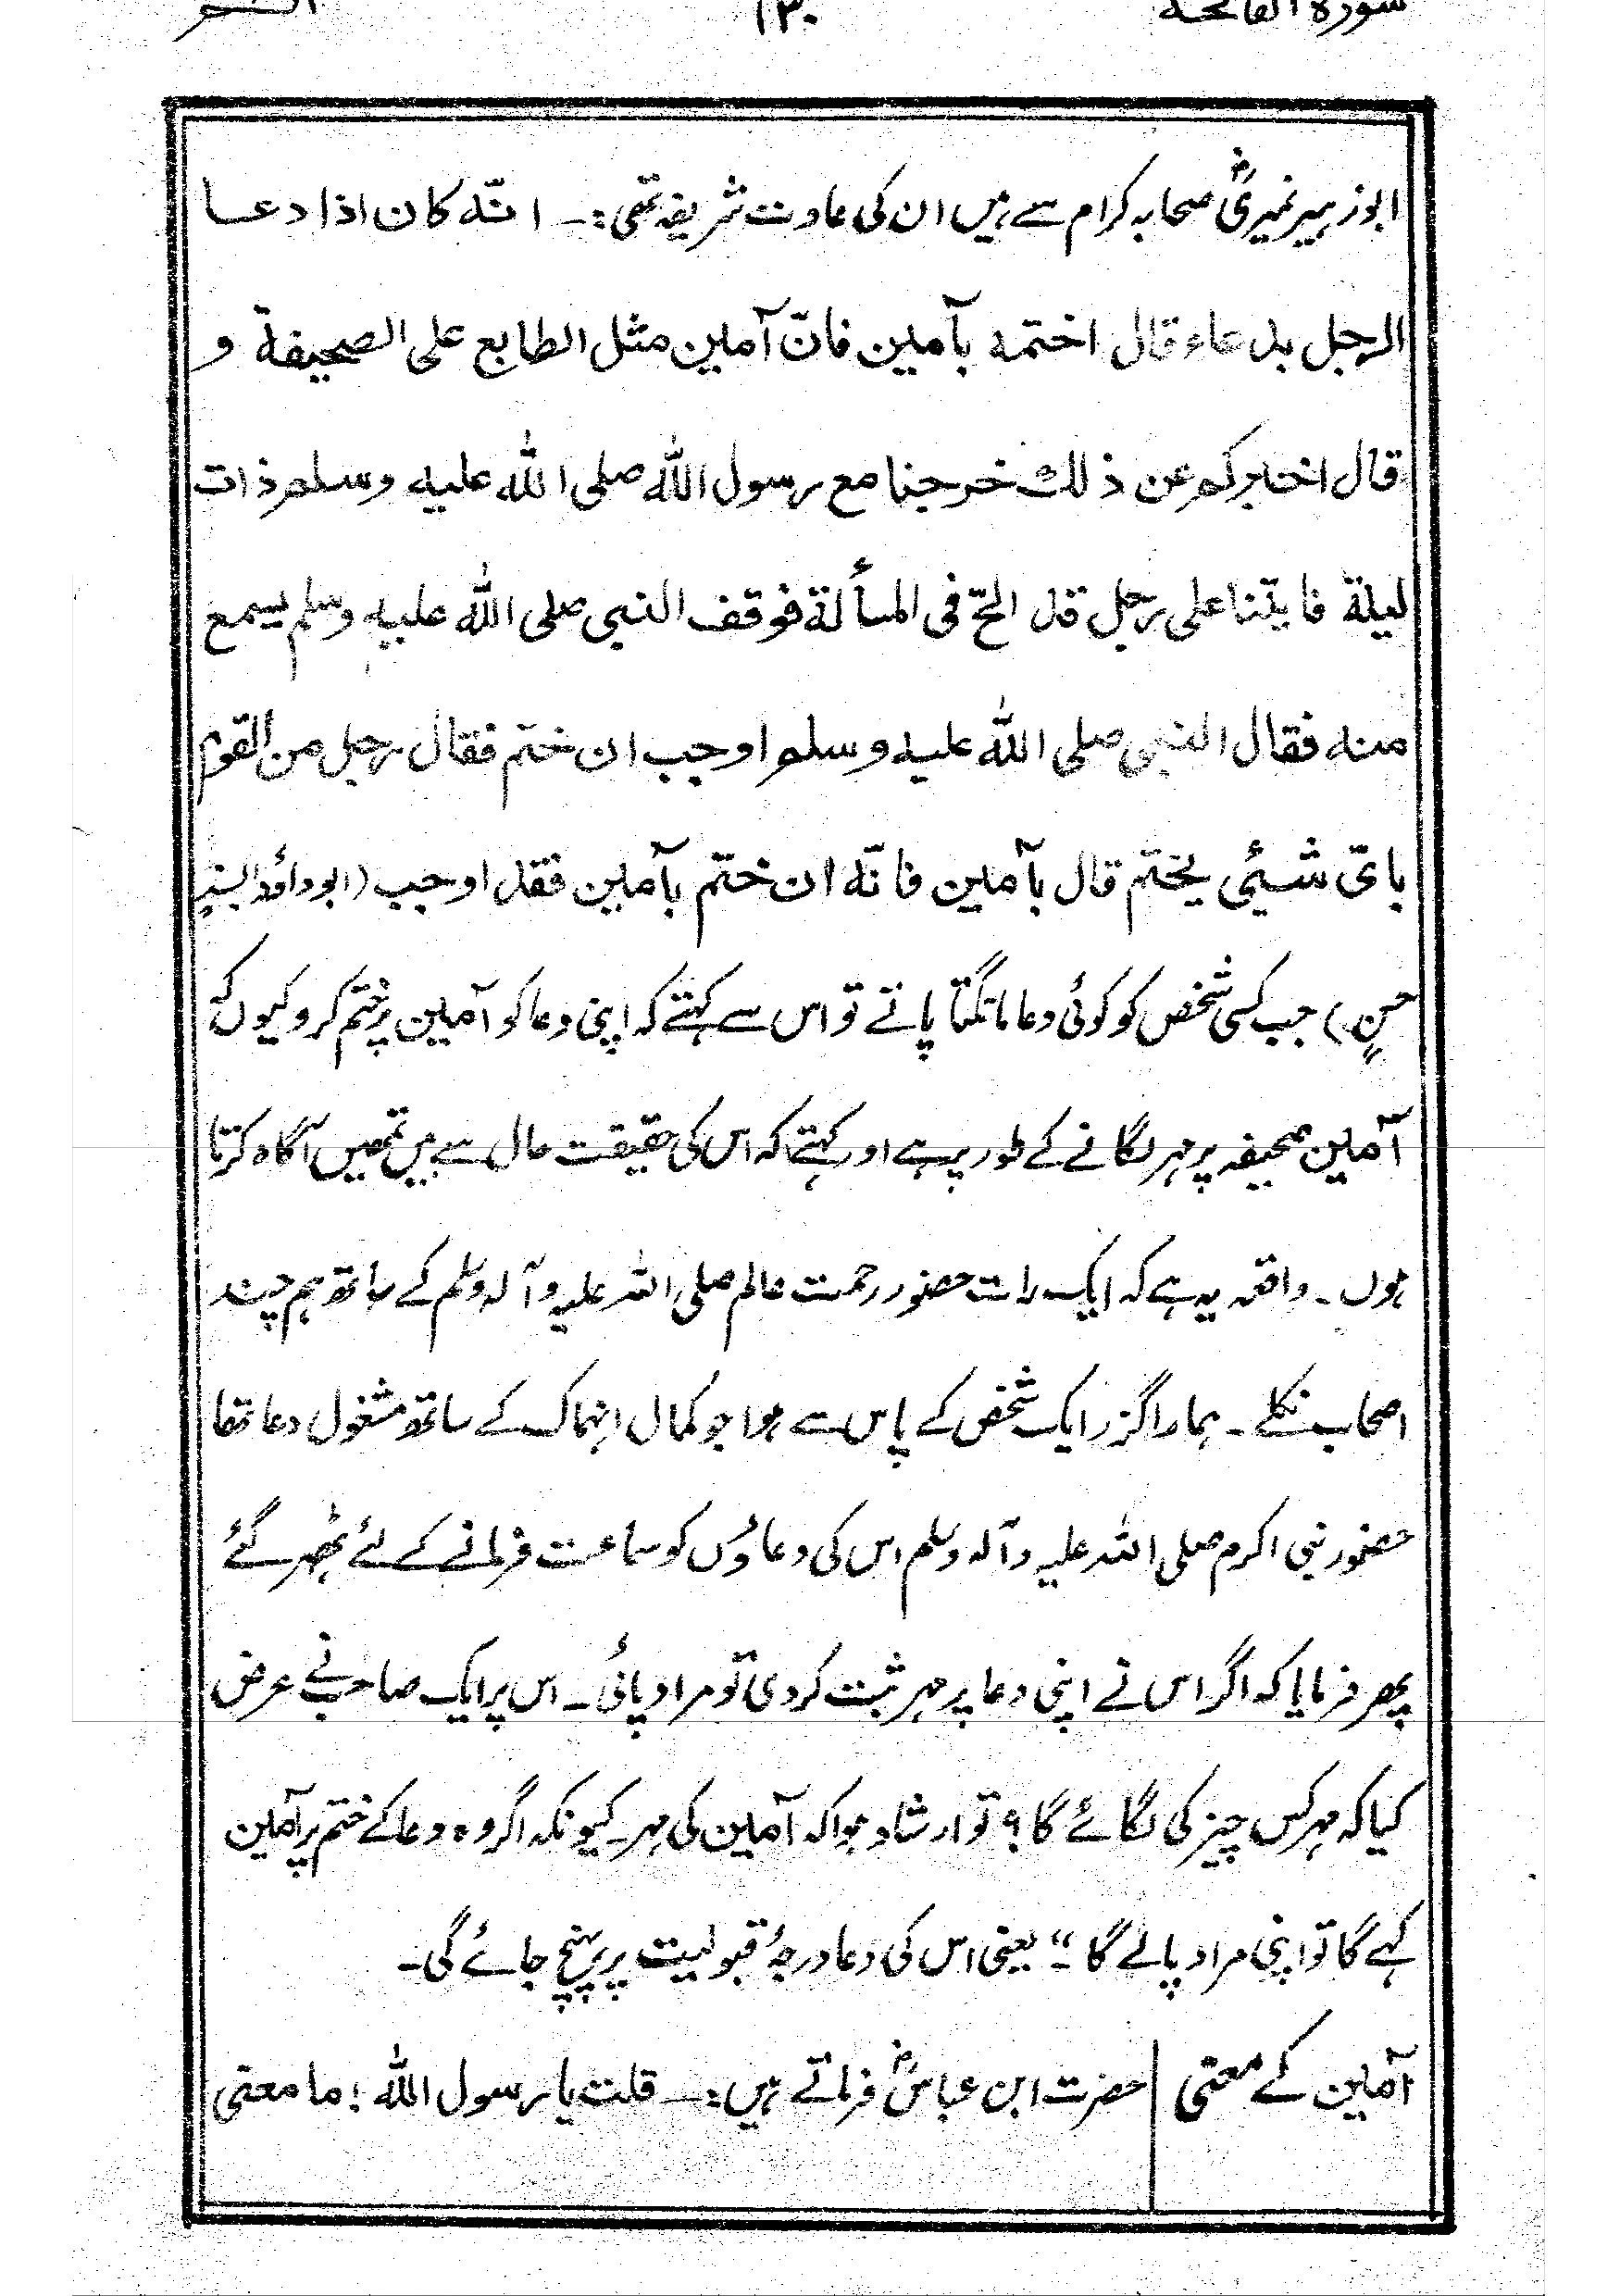 سورۃ الفاتحہ ۱۳۰
ابوزہیر نمیریؓ صحابہ کرام سے ہیں ان کی عادت شریفہ تھی :۔ انّه کان اذا دعا
الرجل بدعاء قال اختمه بآمین فانّ آمین مثل الطابع علی الصحیفة و
قال اخبرکم عن ذلك خرجنا مع رسول الله صلی الله علیه وسلم ذات
لیلة فایتنا علی رجل قد الحّ فی المسألة فوقف النبی صلی الله علیه وسلم یسمع
منه فقال النبی صلی الله علیه وسلم اوجب ان ختم فقال رجل من القوم
بایّ شیئی یختم قال بآمین فانّه ان ختم بآمین فقد اوجب (ابوداؤد بسند
حسن) جب کسی شخص کو کوئی دعا مانگتا پاتے تو اس سے کہتے کہ اپنی دعا کو آمین پر ختم کرو کیوں کہ
آمین صحیفہ پر مہر لگانے کے طور پر ہے اور کہتے کہ اس کی حقیقت حال سے میں تمھیں آگاہ کرتا
ہوں ۔ واقعہ یہ ہے کہ ایک رات حضور رحمت عالم صلی اللہ علیہ وآلہ وسلم کے ساتھ ہم چند
اصحاب نکلے ۔ ہمارا گزر ایک شخص کے پاس سے ہوا جو کمال انہماک کے ساتھ مشغول دعا تھا
حضور نبی اکرم صلی اللہ علیہ وآلہ وسلم اس کی دعاؤں کو سماعت فرمانے کے لئے ٹھہر گئے
پھر فرمایا کہ اگر اس نے اپنی دعا پر مہر ثبت کر دی تو مراد پائی ۔ اس پر ایک صاحب نے عرض
کیا کہ مہر کس چیز کی لگائے گا؟ تو ارشاد ہوا کہ آمین کی مہر۔ کیونکہ اگر وہ دعا کے ختم پر آمین
کہے گا تو اپنی مراد پالے گا ۔" یعنی اس کی دعا درجۂ قبولیت پر پہنچ جائے گی۔
آمین کے معنی | حضرت ابن عباسؓ فرماتے ہیں :۔ قلت یا رسول الله ! ما معنی